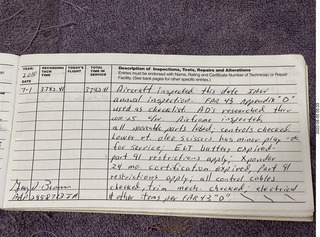 YEAR 2015 RECORDING TACH TIME TODAY'S FLIGHT TOTAL TIME IN SERVICE Description of Inspections, Tests, Repairs and Alterations
DATE Entries must be endorsed with Name, Rating and Certificate Number of Technician or Repair Facility. (See back pages for other specific entries.)
7-1 3782.41 3782.41 Aircraft inspected this date IAW
annual inspection. FAR 43 Appendix "D"
used as checklist. AD's researched thru
Airframe inspected,
all moveable parts lubed, controls checked
Lower rt. oleo scissors has minor play - ok
for service; ELT battery expired -
part 91 restrictions apply; Xponder
24 mo. certification expired, Part 91
restrictions apply; all control cables
checked, trim mech. checked, electrical
& other items per FAR 43 "D"